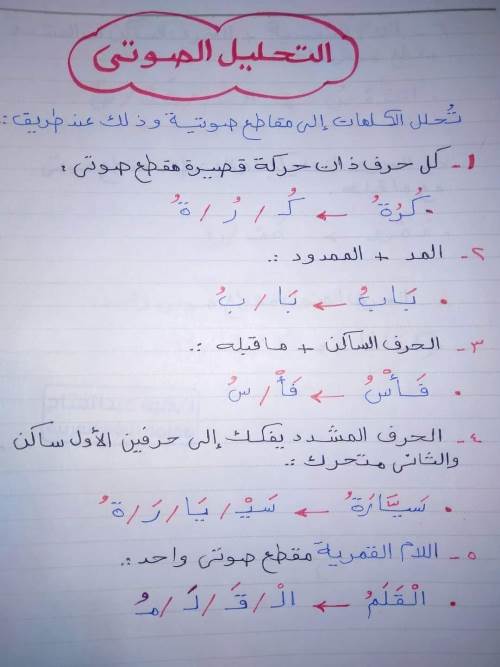 التحليل الصوتى
تُحلل الكلمات إلى مقاطع صوتية وذلك عند طريق :
1- كل حرف ذات حركة قصيرة مقطع صوتى :
• كُرُةُ ← كُ / رُ / ةُ
٢- المد + الممدود :.
• بَابُ ← بَا / بُ
٣- الحرف الساكن + ماقبله :.
• فَأْسُ ← فَأْ / سُ
٤- الحرف المشدد يفكك إلى حرفين الأول ساكن
والثانى متحرك :.
• سَيَّارَةُ ← سَيْ / يَا / رَ / ةُ
٥- اللام القمرية مقطع صوتى واحد :.
• الْقَلَمُ ← الْ / قَ / لَ / مُ